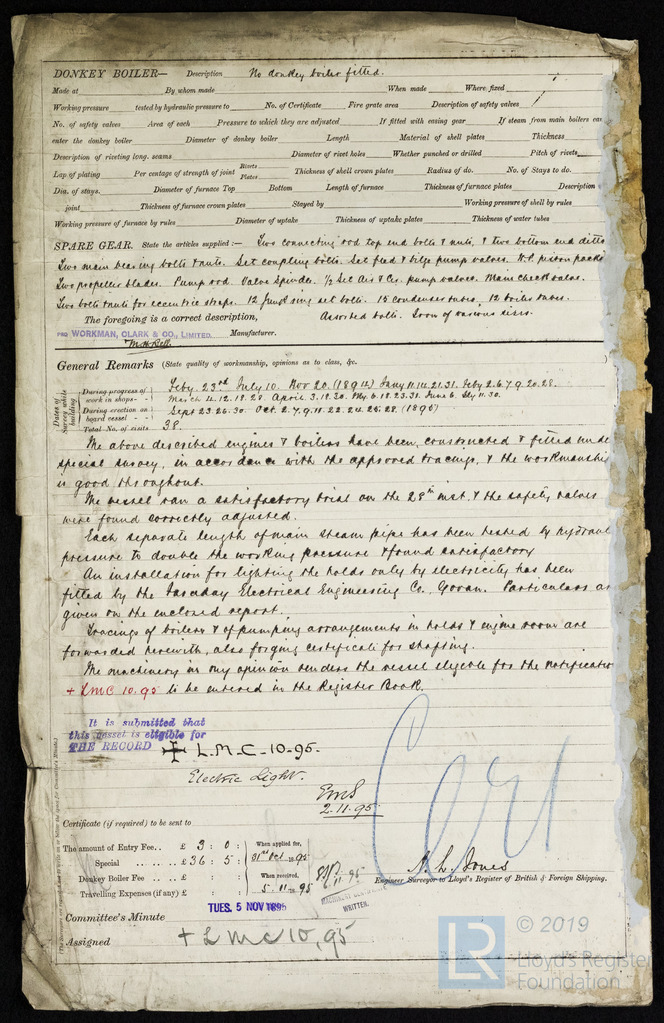 DONKEY BOILER— Description No donkey boiler fitted.
Made at By whom made When made Where fixed
Working pressure tested by hydraulic pressure to No. of Certificate Fire grate area Description of safety valves
No. of safety valves Area of each Pressure to which they are adjusted If fitted with easing gear If steam from main boilers can
enter the donkey boiler Diameter of donkey boiler Length Material of shell plates Thickness
Description of riveting long. seams Diameter of rivet holes Whether punched or drilled Pitch of rivets
Lap of plating Per centage of strength of joint Rivets Plates Thickness of shell crown plates Radius of do. No. of Stays to do.
Dia. of stays. Diameter of furnace Top Bottom Length of furnace Thickness of furnace plates Description
joint Thickness of furnace crown plates Stayed by Working pressure of shell by rules
Working pressure of furnace by rules Diameter of uptake Thickness of uptake plates Thickness of water tubes
SPARE GEAR. State the articles supplied:— Two connecting rod top end bolts & nuts, & two bottom end ditto
Two main bearing bolts & nuts. Set coupling bolts. Set feed & bilge pump valves. H.P. piston packg
Two propeller blades. Pump rod. Valve Spindle. 1/2 Set Air & Cir. pump valves. Main check valve.
Two bolts & nuts for eccentric straps. 12 junk ring set bolts. 15 condenser tubes, 12 boiler tubes.
The foregoing is a correct description, Assorted bolts. Iron of various sizes.
PRO WORKMAN, CLARK & CO., LIMITED. Manufacturer.
General Remarks (State quality of workmanship, opinions as to class, &c.
Dates of Survey while building
During progress of work in shops - - Feby. 23rd July 10. Nov 20. (1894) Jany 11.14.21.31. Feby 2.6.7.9.20.28.
March 4.12.18.28. April 3.19.30. My 6.18.23.31. June 6. Sly 11.30.
During erection on board vessel - - Sept 23.26.30. Oct. 2.7.9.11.22.24.25.28. (1895)
Total No. of visits 38.
The above described engines & boilers have been constructed & fitted unde
special survey, in accordance with the approved tracings, & the workmanship
is good throughout.
The vessel ran a satisfactory trial on the 29th inst. & the safety valves
were found correctly adjusted.
Each separate length of main steam pipe has been tested by hydraul
pressure to double the working pressure & found satisfactory
An installation for lighting the holds only by electricity has been
fitted by the Faraday Electrical Engineering Co. Govan. Particulars ar
given on the enclosed report.
Tracings of boilers & of pumping arrangements in holds & engine room are
forwarded herewith, also forging certificate for shafting.
The machinery in my opinion renders the vessel eligible for the notification
+ LMC 10.95 to be entered in the Register Book.
It is submitted that
this vessel is eligible for
THE RECORD + L.M.C-10-95.
Electric Light.
2.11.95
Certificate (if required) to be sent to
The amount of Entry Fee.. £ 3 : 0 : When applied for,
Special .. .. .. .. £ 36 : 5 : 31st Oct 1895
Donkey Boiler Fee .. .. £ : : When received,
Travelling Expenses (if any) £ : : 5.11.95
MACHINERY CERTIFICATE
WRITTEN.
A. L. Jones
Engineer Surveyor to Lloyd's Register of British & Foreign Shipping.
TUES. 5 NOV 1895
Committee's Minute
Assigned + LMC 10,95
LR © 2019
Lloyd's Register
Foundation